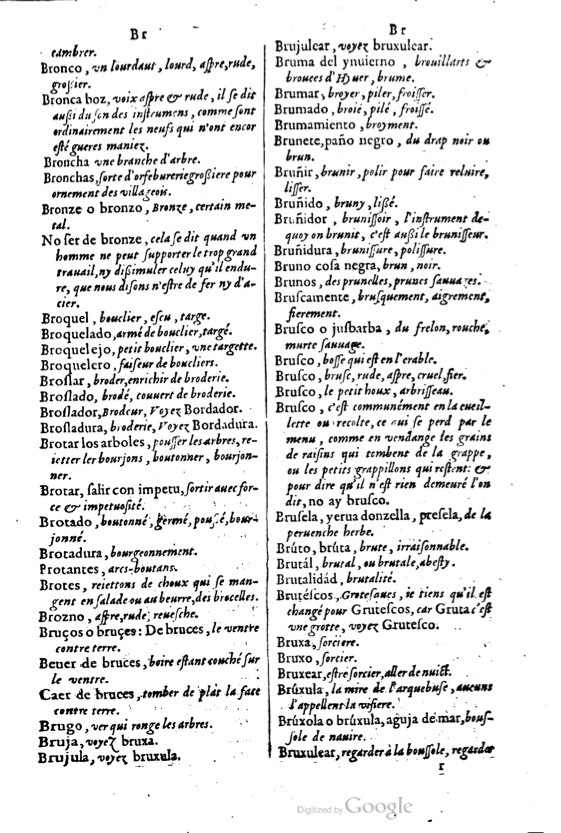 Br
cambrer.
Bronco, vn lourdaut, lourd, aſpre, rude,
groſsier.
Bronca boz, voix aſpre & rude, il ſe dit
außi du ſon des inſtrumens, comme ſont
ordinairement les neufs qui n'ont encor
eſté gueres maniez.
Broncha vne branche d'arbre.
Bronchas, ſorte d'orfebureriegroßiere pour
ornement des villageois.
Bronze o bronzo, Bronze, certain me-
tal.
No ſer de bronze, cela ſe dit quand vn
homme ne peut ſupporter le trop grand
trauail, ny dißimuler celuy qu'il endu-
re, que nous diſons n'eſtre de fer ny d'a-
cier.
Broquel, bouclier, eſcu, targe.
Broquelado, armé de bouclier, targé.
Broquelejo, petit bouclier, vne targette.
Broquelero, faiſeur de boucliers.
Broſlar, broder, enrichir de broderie.
Broſlado, brodé, couuert de broderie.
Broſlador, Brodeur, Voyez Bordador.
Broſladura, broderie, Voyez Bordadura.
Brotar los arboles, pouſſer les arbres, re-
ietter ler bourjons, boutonner, bourjon-
ner.
Brotar, ſalir con impetu, ſortir auec for-
ce & impetuoſité.
Brotado, boutonné, germé, pouſſé, bour-
jonné.
Brotadura, bourgeonnement.
Protantes, arcs-boutans.
Brotes, reiettons de choux qui ſe man-
gent en ſalade ou au beurre, des brocelles.
Brozno, aſpre, rude, reueſche.
Bruços o bruçes: De bruces, le ventre
contre terre.
Beuer de bruces, boire eſtant couché ſur
le ventre.
Caer de bruces, tomber de plat la face
contre terre.
Brugo, ver qui ronge les arbres.
Bruja, voyez bruxa.
Brujula, voyez bruxula.
Br
Brujulear, voyez bruxulear.
Bruma del ynuierno, brouillarts &
brouces d'Hyuer, brume.
Brumar, broyer, piler, froiſſer.
Brumado, broié, pilé, froiſſé.
Brumamiento, broyment.
Brunete, paño negro, du drap noir ou
brun.
Bruñir, brunir, polir pour faire reluire,
liſſer.
Bruñido, bruny, lißé.
Bruñidor, bruniſſoir, l'inſtrument de-
quoy on brunit, c'eſt außi le bruniſſeur.
Bruñidura, bruniſſure, poliſſure.
Bruno coſa negra, brun, noir.
Brunos, des prunelles, prunes ſauuages.
Bruſcamente, bruſquement, aigrement,
fierement.
Bruſco o juſbarba, du frelon, rouche,
murte ſauuage.
Bruſco, boſſe qui eſt en l'erable.
Bruſco, bruſc, rude, aſpre, cruel, fier.
Bruſco, le petit houx, arbriſſeau.
Bruſco, c'eſt communément en la cueil-
lette ou recolte, ce qui ſe perd par le
menu, comme en vendange les grains
de raiſins qui tombent de la grappe,
ou les petits grappillons qui reſtent: &
pour dire qu'il n'eſt rien demeuré l'on
dit, no ay bruſco.
Bruſela, yerua donzella, preſela, de la
peruenche herbe.
Brúto, brúta, brute, irraiſonnable.
Brutál, brutal, ou brutale, abeſty.
Brutalidád, brutalité.
Brutéſcos, Groteſques, ie tiens qu'il eſt
changé pour Gruteſcos, car Gruta c'eſt
vne grotte, voyez Gruteſco.
Bruxa, ſorciere.
Bruxo, ſorcier.
Bruxear, eſtre ſorcier, aller de nuict.
Brúxula, la mire de l'arquebuſe, aucuns
l'appellent la viſiere.
Brúxola o brúxula, aguja de mar, bouſ-
ſole de nauire.
Bruxulear, regarder à la bouſſole, regarder
r
Digitized by Google